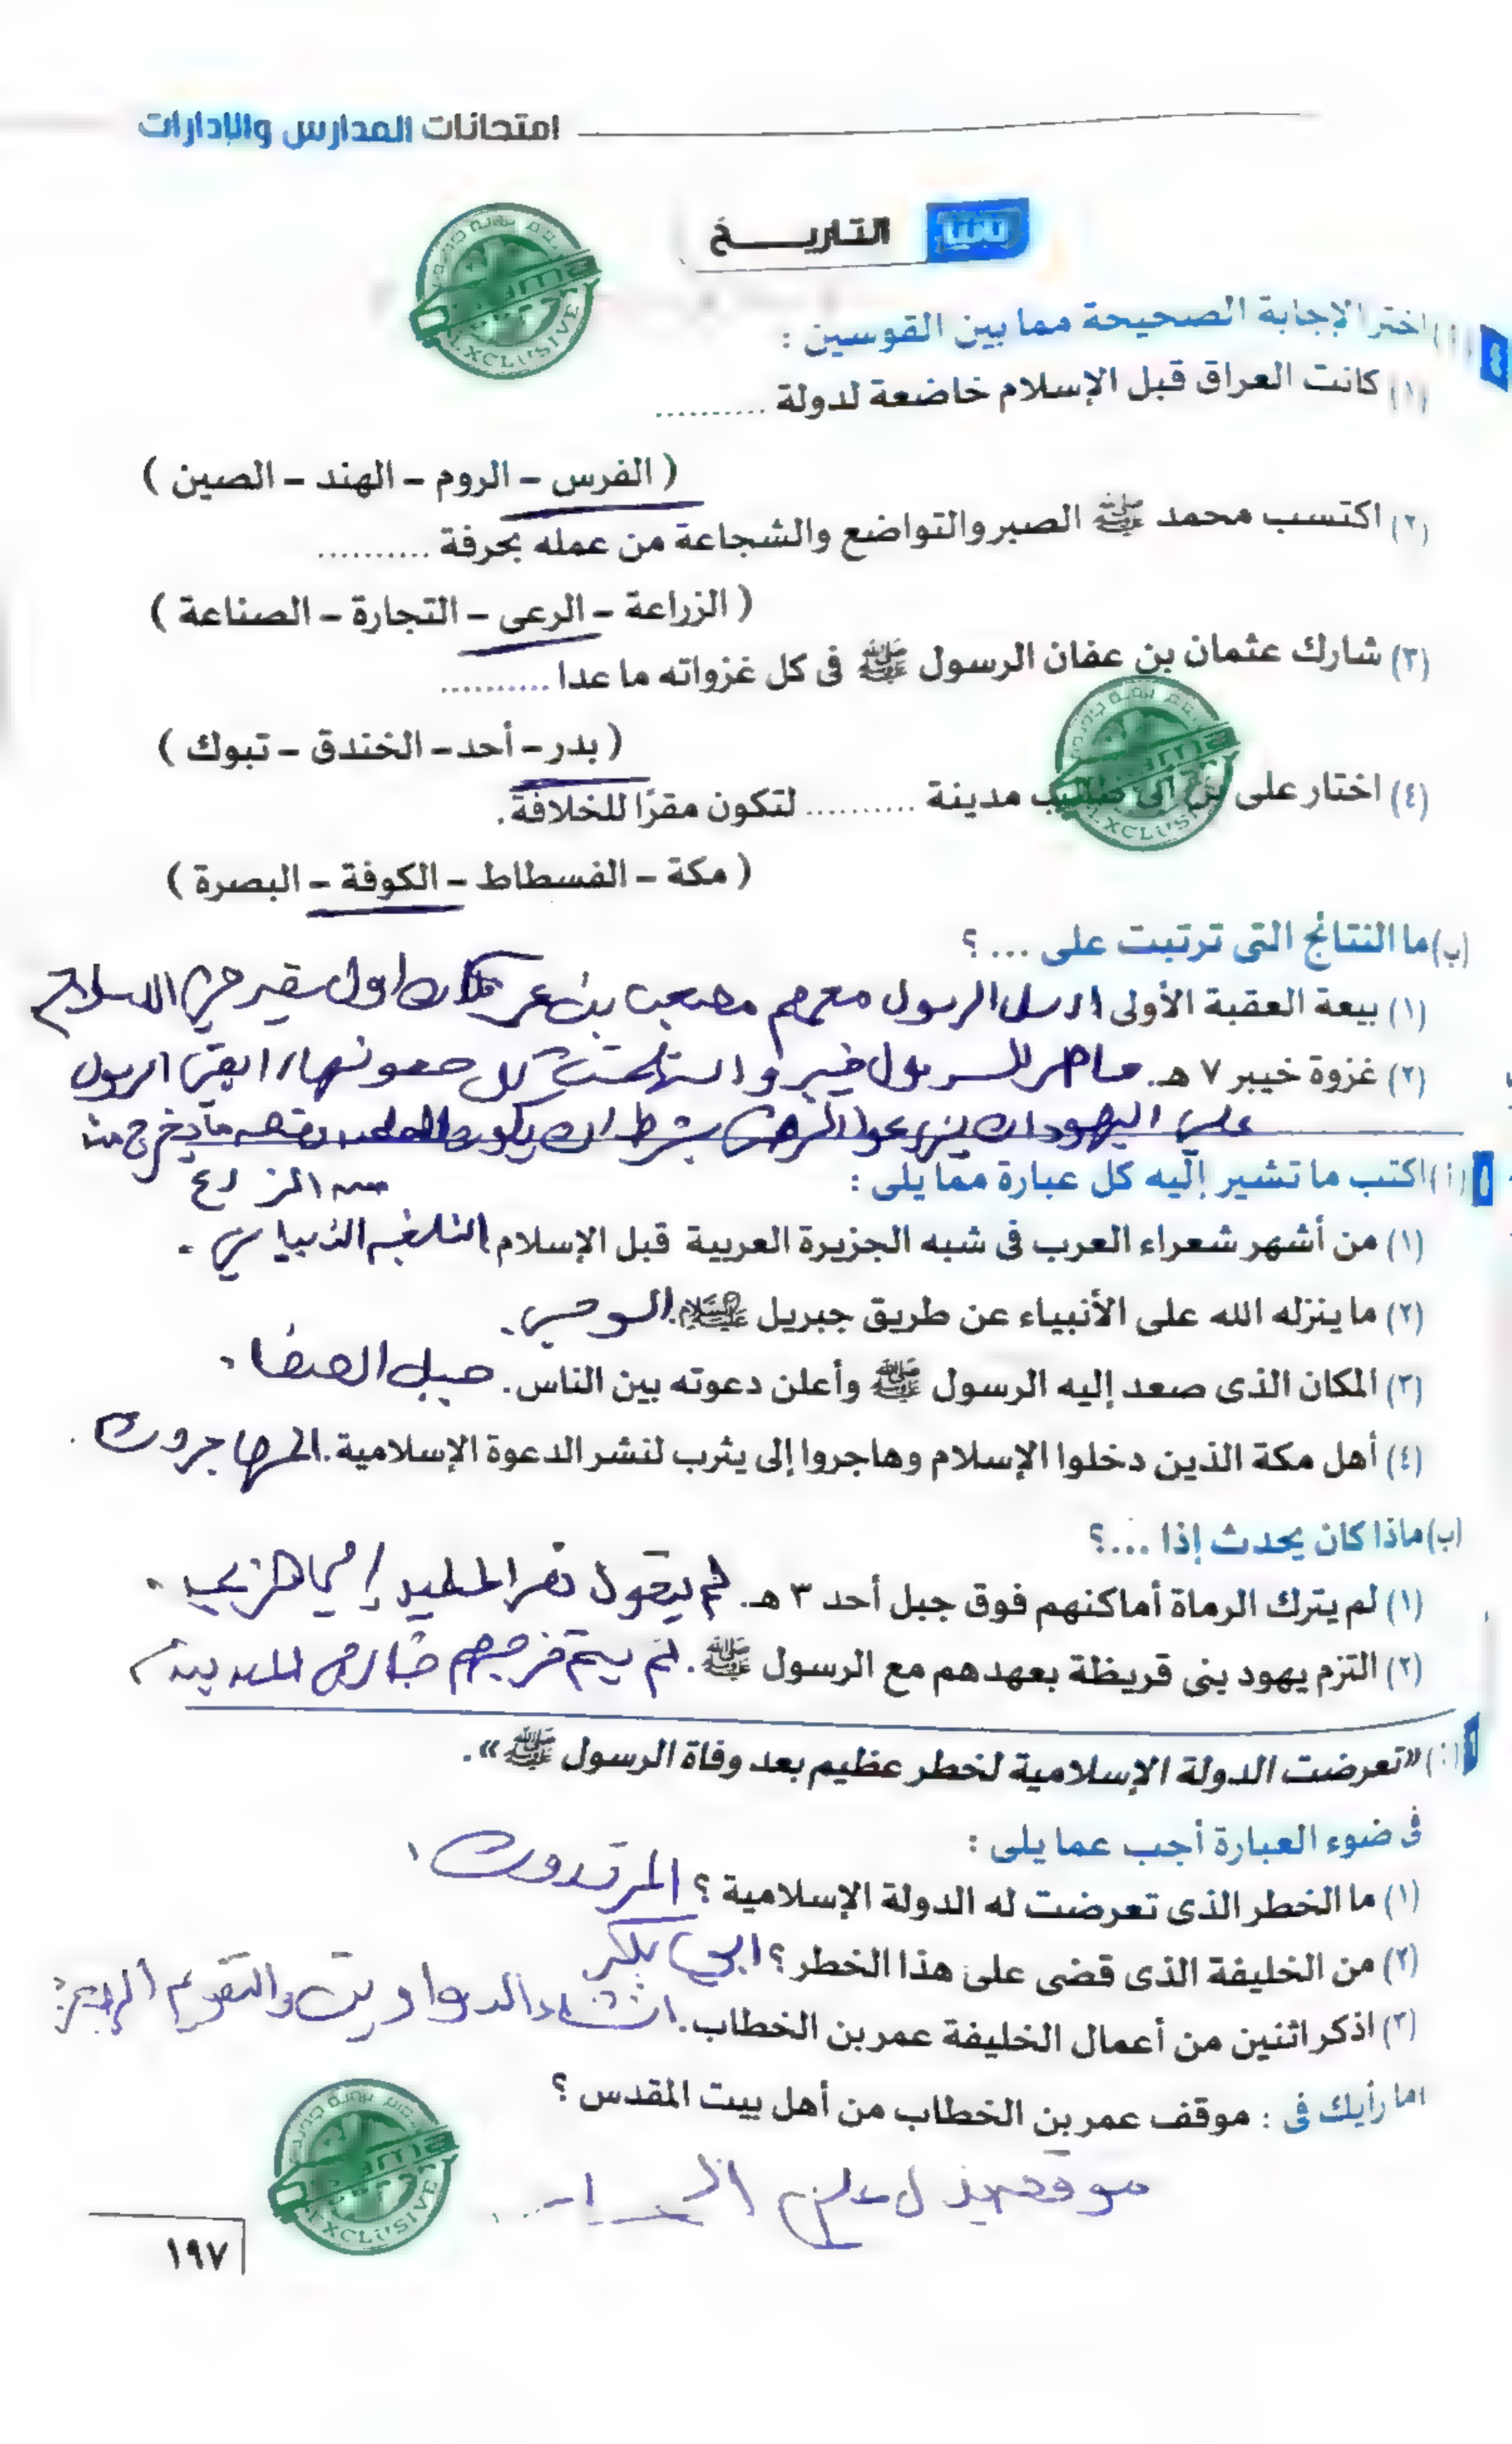 امتحانات المدارس والإدارات
ثانيًا التاريــــخ
٤ (أ) اختر الإجابة الصحيحة مما بين القوسين :
(١) كانت العراق قبل الإسلام خاضعة لدولة ..........
( الفرس – الروم – الهند – الصين )
(٢) اكتسب محمد ﷺ الصبر والتواضع والشجاعة من عمله بحرفة ..........
( الزراعة – الرعى – التجارة – الصناعة )
(٣) شارك عثمان بن عفان الرسول ﷺ فى كل غزواته ما عدا ..........
( بدر – أحد – الخندق – تبوك )
(٤) اختار على بن أبى طالب مدينة .......... لتكون مقرًا للخلافة.
( مكة – الفسطاط – الكوفة – البصرة )
(ب) ما النتائج التى ترتبت على ... ؟
(١) بيعة العقبة الأولى ارسل الرسول معهم مصعب بن عمير فكان اول سفير في الاسلام
(٢) غزوة خيبر ٧ هـ. حاصر الرسول خيبر واستسلمت كل حصونها، ابقى الرسول
على اليهود ان يزرعوا الارض بشرط ان يكون للمسلمين نصف ما يخرج من
الزرع
٥ (أ) اكتب ما تشير إليه كل عبارة مما يلى :
(١) من أشهر شعراء العرب فى شبه الجزيرة العربية قبل الإسلام النابغه الذبياني .
(٢) ما ينزله الله على الأنبياء عن طريق جبريل عليه السلام. الوحي .
(٣) المكان الذى صعد إليه الرسول ﷺ وأعلن دعوته بين الناس. جبل الصفا .
(٤) أهل مكة الذين دخلوا الإسلام وهاجروا إلى يثرب لنشر الدعوة الإسلامية. المهاجرون .
(ب) ماذا كان يحدث إذا ...؟
(١) لم يترك الرماة أماكنهم فوق جبل أحد ٣ هـ. لم يتحول نصر المسلمين إلى هزيمه .
(٢) التزم يهود بنى قريظة بعهدهم مع الرسول ﷺ. لم يتم خروجهم خارج المدينة
٦ (أ) «تعرضت الدولة الإسلامية لخطر عظيم بعد وفاة الرسول ﷺ».
فى ضوء العبارة أجب عما يلى :
(١) ما الخطر الذى تعرضت له الدولة الإسلامية ؟ المرتدون
(٢) من الخليفة الذى قضى على هذا الخطر ؟ ابي بكر
(٣) اذكر اثنين من أعمال الخليفة عمر بن الخطاب. انشاء الدواوين والتقويم الهجري
ما رأيك فى : موقف عمر بن الخطاب من أهل بيت المقدس ؟
موقف يدل على
١٩٧